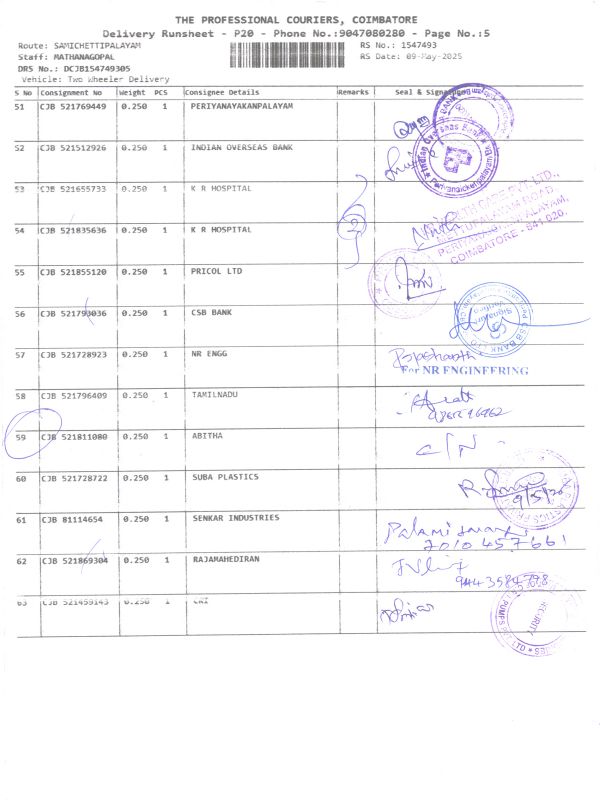 THE PROFESSIONAL COURIERS, COIMBATORE
Delivery Runsheet - P20 - Phone No.:9047080280 - Page No.:5
Route: SAMICHETTIPALAYAM RS No.: 1547493
Staff: MATHANAGOPAL RS Date: 09-May-2025
DRS No.: DCJB154749305
Vehicle: Two Wheeler Delivery
S No Consignment No Weight PCS Consignee Details Remarks Seal &
51 CJB 521769449 0.250 1 PERIYANAYAKANPALAYAM
52 CJB 521512926 0.250 1 INDIAN OVERSEAS BANK
Indian Overseas Bank
53 CJB 521655733 0.250 1 K R HOSPITAL
54 CJB 521835636 0.250 1 K R HOSPITAL
COIMBATORE - 641 020.
55 CJB 521855120 0.250 1 PRICOL LTD
56 CJB 521793036 0.250 1 CSB BANK
CSB BANK
57 CJB 521728923 0.250 1 NR ENGG
For NR ENGINEERING
58 CJB 521796409 0.250 1 TAMILNADU
59 CJB 521811080 0.250 1 ABITHA
60 CJB 521728722 0.250 1 SUBA PLASTICS
61 CJB 81114654 0.250 1 SENKAR INDUSTRIES
7010457661
62 CJB 521869304 0.250 1 RAJAMAHEDIRAN
9443584798
63 CJB 521459143 0.250 1 CRI
SECURITY